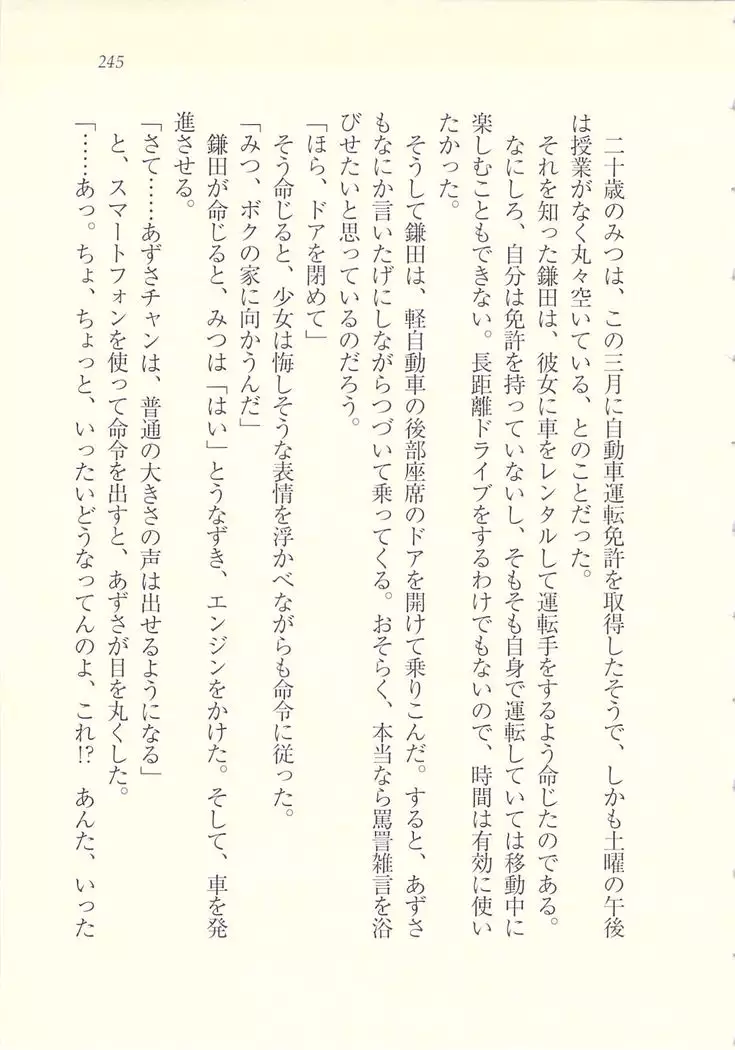 245
二十歳のみつは、この三月に自動車運転免許を取得したそうで、しかも土曜の午後
は授業がなく丸々空いている、とのことだった。
それを知った鎌田は、彼女に車をレンタルして運転手をするよう命じたのである。
なにしろ、自分は免許を持っていないし、そもそも自身で運転していては移動中に
楽しむこともできない。長距離ドライブをするわけでもないので、時間は有効に使い
たかった。
そうして鎌田は、軽自動車の後部座席のドアを開けて乗りこんだ。すると、あずさ
もなにか言いたげにしながらつづいて乗ってくる。おそらく、本当なら罵詈雑言を浴
びせたいと思っているのだろう。
「ほら、ドアを閉めて」
そう命じると、少女は悔しそうな表情を浮かべながらも命令に従った。
「みつ、ボクの家に向かうんだ」
鎌田が命じると、みつは「はい」とうなずき、エンジンをかけた。そして、車を発
進させる。
「さて……あずさチャンは、普通の大きさの声は出せるようになる」
と、スマートフォンを使って命令を出すと、あずさが目を丸くした。
「……あっ。ちょ、ちょっと、いったいどうなってんのよ、これ!?　あんた、いった